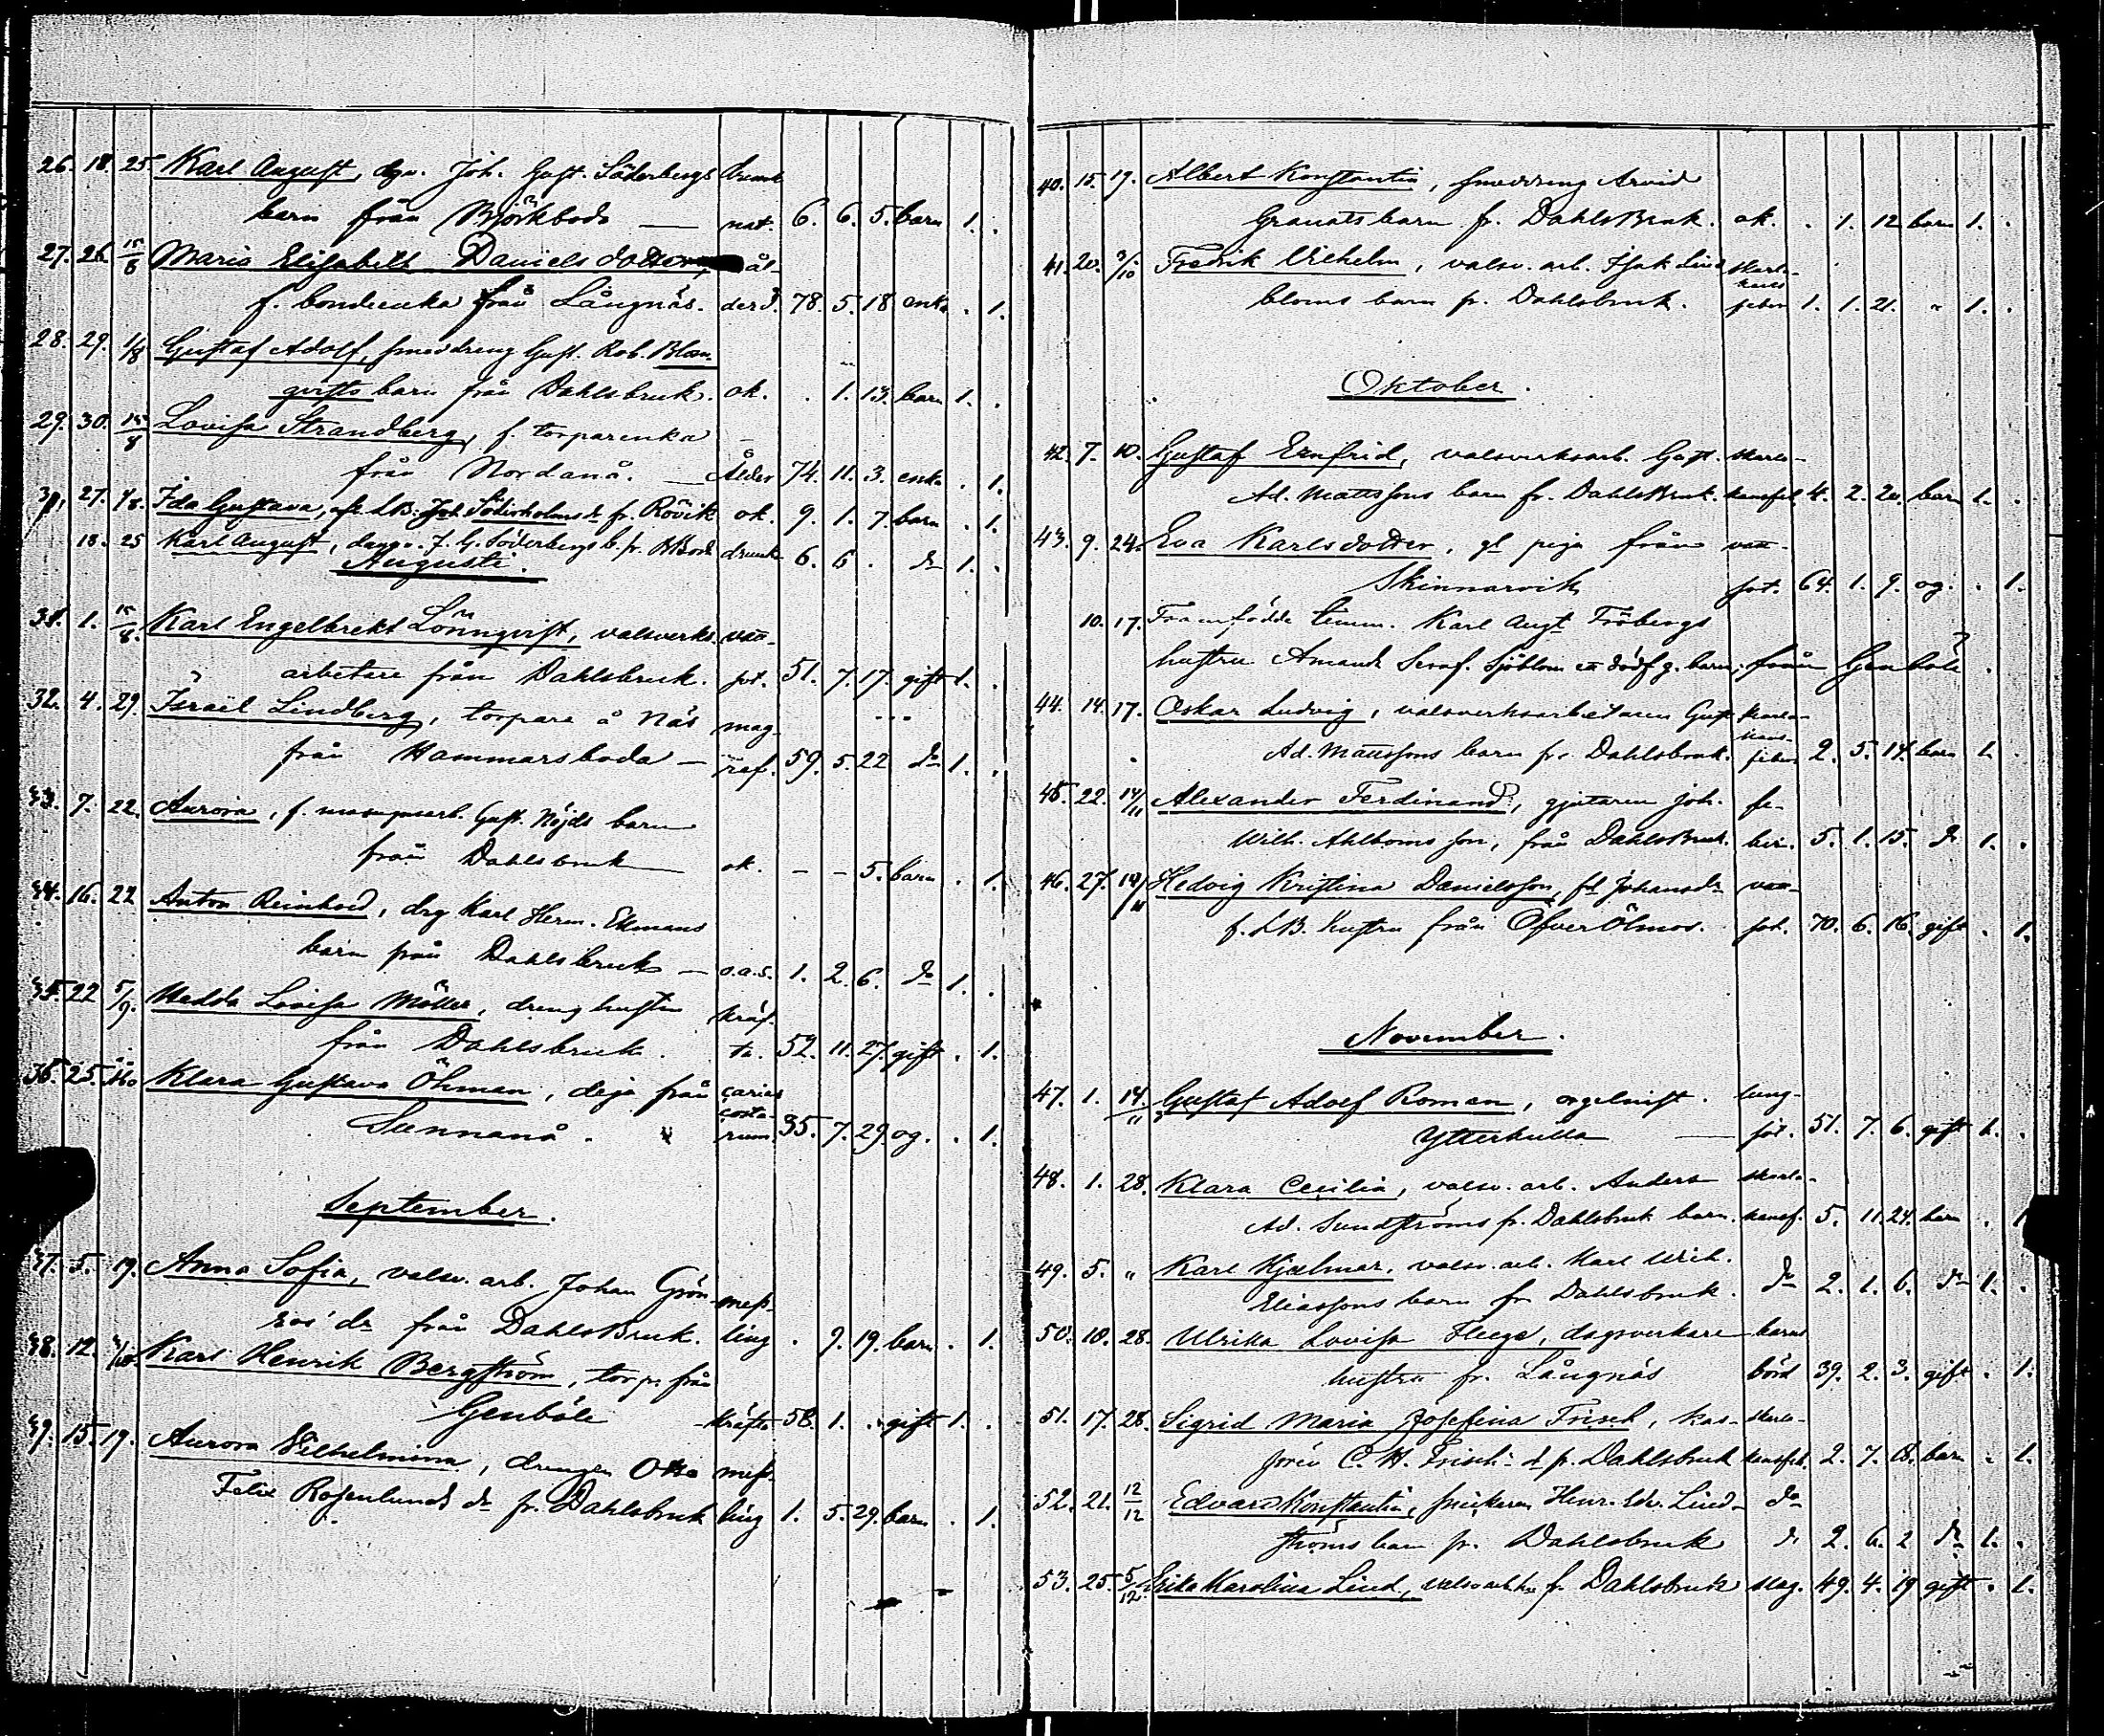 26. 18. 25. Karl August, dgv. Joh. Gust. Söderbergs drunk
barn från Björkboda — nat. 6. 6. 5. barn 1. .
27. 26. 15/8 Maria Elisabeth Danielsdotter, ål-
f. bondeenka från Långnäs. derd. 78. 5. 18 enka . 1.
28. 29. 1/8 Gustaf Adolf, smeddreng Gust. Rob. Blom-
qvists barn från Dahlsbruk. ok. . 1. 13. barn 1. .
29. 30. 15/8 Lovisa Strandberg, f. torparenka
från Nordanå. — Ålder 74. 11. 3. enka . 1.
30. 27. 1/8. Ida Gustava, LB. Joh. Söderholms dr fr. Rövik ok. 9. 1. 7. barn . 1.
18. 25 Karl August, J. G. Söderbergs b. fr. BBoda drunk 6. 6 . do 1. .
Augusti.
31. 1. 15/8. Karl Engelbrekt Lönnqvist, valsverks- vatt-
arbetare från Dahlsbruk. sot. 51. 7. 17. gift 1. .
32. 4. 29. Israël Lindberg, torpare å Näs mag-
från Hammarsboda —räf. 59. 5. 22 do 1. .
33. 7. 22. Aurora, f. masugnsarb. Gust. Nöjds barn
från Dahlsbruk — ok. – – 5. barn . 1.
34. 16. 22 Anton Reinhold, drg Karl Herm. Ekmans
barn från Dahlsbruk — o.a.s. 1. 2. 6. do 1. .
35. 22 5/9. Hedda Lovisa Möller, dreng hustru kräf-
från Dahlsbruk. ta. 52. 11. 27. gift . 1.
36. 25. Klara Gustava Öhman, deja från caries
costa-
Sunnanå. rum. 35. 7. 29. og. . 1.
September.
37. 5. 19. Anna Sofia, valsv. arb. Johan Grön- mess-
ros' dr från DahlsBruk. ling . 9. 19. barn . 1.
38. 12. Karl Henrik Bergström, torp. från
Genböle kräfta 58. 1. . gift 1. .
39. 15. 19. Aurora Vilhelmina, drengen Otto mess-
Felix Rosenlunds dr fr. Dahlsbruk ling 1. 5. 29. barn . 1.
40. 15. 19. Albert Konstantin, smeddreng Arvid
Granats barn fr. DahlsBruk. ok. . 1. 12 barn 1. .
41. 20. 3/10 Fredrik Vilhelm, valsv. arb. Isak Lind skarla-
kans
bloms barn fr. Dahlsbruk. feber 1. 1. 21. " 1. .
Oktober.
42. 7. 10. Gustaf Ernfrid, valsverksarb. Gust. skarla-
Ad. Mattssons barn fr. DahlsBruk. kansfeb. 4. 2. 20. barn 1. .
43. 9. 24. Eva Karlsdotter, gl piga från vatt-
Skinnarvik sot. 64. 1. 9. og. . 1.
10. 17. Framfödde timm. Karl Augt Fröbergs
hustru Amanda Seraf. Sjöblom ett dödf. g. barn, från Genböle.
44. 14. 17. Oskar Ludvig, valsverksarbetaren Gust skarla-
kans-
Ad. Mattssons barn fr. Dahlsbruk. feber 2. 5. 14. barn 1. .
45. 22. 14/11 Alexander Ferdinand, gjutaren Joh. fe-
Wilh. Ahlboms son, från DahlsBruk. ber. 5. 1. 15. do 1. .
46. 27. 14/11 Hedvig Kristina Danielsson, fd Johansdr vatt-
f. LB. hustru från ÖfverÖlmos. sot. 70. 6. 16. gift . 1.
November.
47. 1. 14/11 Gustaf Adolf Roman, orgelnist. lung-
Ytterkulla — sot. 51. 7. 6. gift 1. .
48. 1. 28. Klara Cecilia, valsv. arb. Anders skarla-
Ad. Sundströms fr. Dahlsbruk barn. kansf. 5. 11. 24. barn . 1
49. 5. " Karl Hjalmar, valsv. arb. Karl Ulrik.
Eliassons barn fr Dahlsbruk. do 2. 1. 6. do 1. .
50. 10. 28. Ulrika Lovisa Fleege, dagsverkare barns
hustru fr. Långnäs börd 39. 2. 3. gift . 1.
51. 17. 28. Sigrid Maria Josefina Frisch, kas- skarla-
sören C. H. Frisch's d fr. Dahlsbruk kansfeb. 2. 7. 18. barn . 1.
52. 21. 12/12 Edvard Konstantin, snickaren Henr. Edv. Lind- do
ströms barn fr. Dahlsbruk do 2. 6. 2 do 1. .
53. 25. 5/12. Erika Karolina Lind, valsv. arb. hu fr. Dahlsbruk slag. 49. 4. 19 gift . 1.